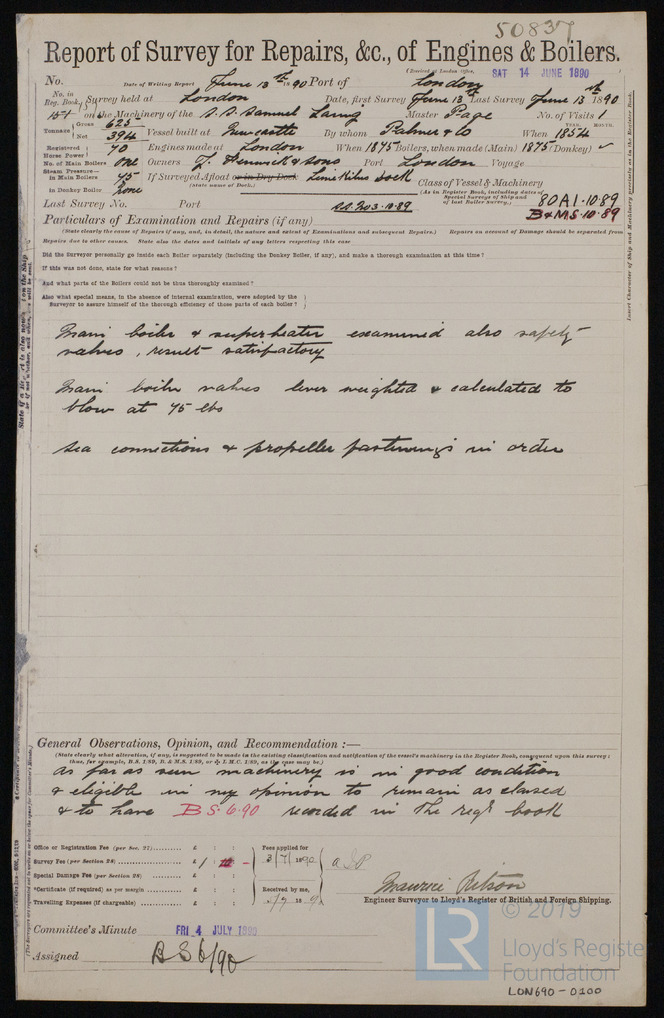 50837
Report of Survey for Repairs, &c., of Engines & Boilers.
(Received at London Office, SAT 14 JUNE 1890
No. Date of Writing Report June 13th 1890 Port of London
No. in Reg. Book. Survey held at London Date, first Survey June 13th Last Survey June 13th 1890
151 on the Machinery of the S.S. Samuel Laing Master Page No. of Visits 1
Tonnage Gross 625 Net 394 Vessel built at Newcastle By whom Palmer & Co When YEAR. MONTH. 1854
Registered Horse Power 70 Engines made at London When 1875 Boilers, when made (Main) 1875 (Donkey) ✓
No. of Main Boilers One Owners J. Fenwick & Sons Port London Voyage
Steam Pressure— in Main Boilers 45 If Surveyed Afloat or in Dry Dock Limekilns Dock Class of Vessel & Machinery
(State name of Dock.) (As in Register Book, including dates of Special Surveys of Ship and of last Boiler survey.)
in Donkey Boiler None 80A1.10.89
Last Survey No. Port S.S. No3.10.89 B&MS.10.89
Particulars of Examination and Repairs (if any)
(State clearly the cause of Repairs if any, and, in detail, the nature and extent of Examinations and subsequent Repairs.) Repairs on account of Damage should be separated from
Repairs due to other causes. State also the dates and initials of any letters respecting this case
Did the Surveyor personally go inside each Boiler separately (including the Donkey Boiler, if any), and make a thorough examination at this time?
If this was not done, state for what reasons?
And what parts of the Boilers could not be thus thoroughly examined?
Also what special means, in the absence of internal examination, were adopted by the
Surveyor to assure himself of the thorough efficiency of those parts of each boiler?
Main boiler & superheater examined also safety
valves, result satisfactory
Main boiler valves lever weighted & calculated to
blow at 45 lbs
Sea connections & propeller fastenings in order
General Observations, Opinion, and Recommendation :—
(State clearly what alteration, if any, is suggested to be made in the existing classification and notification of the vessel's machinery in the Register Book, consequent upon this survey:
thus, for example, B.S. 1/89, B. & M.S. 1/89, or L.M.C. 1/89, as the case may be.)
As far as seen machinery is in good condition
& eligible in my opinion to remain as classed
& to have BS.6.90 recorded in the regr book
Office or Registration Fee (per Sec. 27) £ : :
Fees applied for
Survey Fee (per Section 28) £ 1 : : -
3/7/1890
Special Damage Fee (per Section 28) £ : :
*Certificate (if required) as per margin £ : :
Received by me,
Travelling Expenses (if chargeable) £ : :
Maurice Pitson
Engineer Surveyor to Lloyd's Register of British and Foreign Shipping.
Committee's Minute FRI 4 JULY 1890
Assigned BS 6/90
LR
© 2019
Lloyd's Register
Foundation
LON690-0100
Insert Character of Ship and Machinery precisely as in the Register Book.